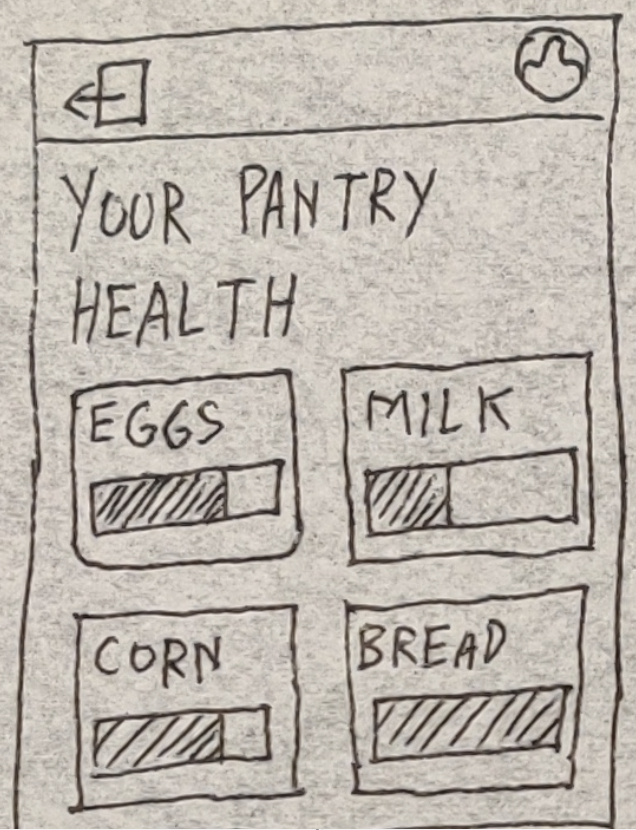 YOUR PANTRY
HEALTH
EGGS
MILK
CORN
BREAD